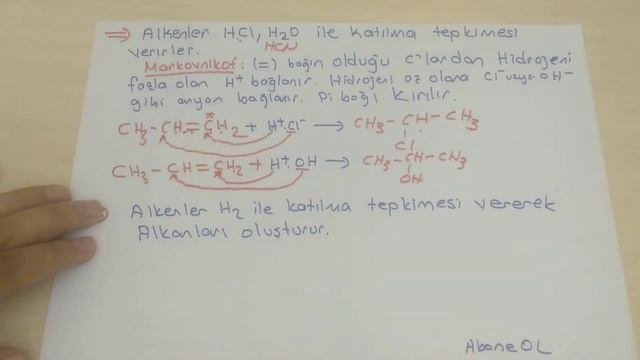 ⇒ Alkenler HCl, H2O ile katılma tepkimesi
verirler. HCN
Markovnikof: (=) bağın olduğu c'lardan Hidrojeni
fazla olan H+ bağlanır. Hidrojeni az olana Cl- veya OH-
gibi anyon bağlanır. Pi bağı kırılır.
CH3-CH=CH2 + H+Cl- → CH3-CH-CH3
Cl
CH3-CH=CH2 + H+OH → CH3-CH-CH3
OH
Alkenler H2 ile katılma tepkimesi vererek
Alkanları oluşturur.
Abone OL